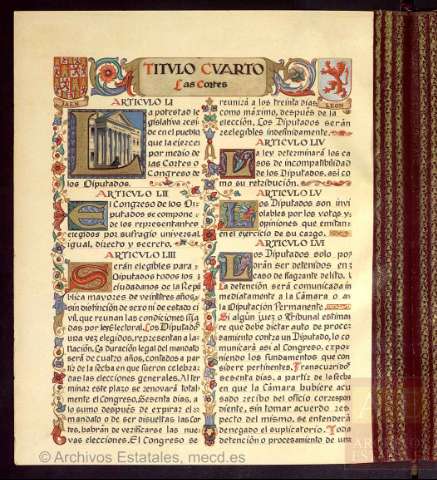 TITVLO CVARTO
Las Cortes
JAEN
LEON
ARTICVLO LI
La potestad le
gislativa resi-
de en el pueblo
que la ejerce
por medio de
las Cortes o
Congreso de
los Diputados.
ARTICVLO LII
El Congreso de los Di-
putados se compone
de los representantes
elegidos por sufragio universal,
igual, directo y secreto.
ARTICVLO LIII
Serán elegibles para
Diputados todos los
ciudadanos de la Repú
blica mayores de veintitrés años,
sin distinción de sexo ni de estado ci
vil, que reunan las condiciones fija
das por ley Electoral. Los Diputados
una vez elegidos, representan a la
Nación. La duración legal del mandato
será de cuatro años, contados a par
tir de la fecha en que fueron celebra
das las elecciones generales. Al ter
minar este plazo se renovará total
mente el Congreso. Sesenta días, a
lo sumo después de expirar el
mandato o de ser disueltas las Cor
tes, habrán de verificarse las nue
vas elecciones. El Congreso se
reunirá a los treinta días
como máximo, después de la
elección. Los Diputados serán
reelegibles indefinidamente.
ARTICVLO LIV
La ley determinará los ca
sos de incompatibilidad
de los Diputados, así co
mo su retribución.
ARTICVLO LV
Los Diputados son invi
olables por los votos y
opiniones que emitan
en el ejercicio de su cargo.
ARTICVLO LVI
Los Diputados solo po
drán ser detenidos en
caso de flagrante delito.
La detención será comunicada in
mediatamente a la Cámara o a
la Diputación Permanente.
Si algún juez o Tribunal estimare
que debe dictar auto de proce
samiento contra un Diputado, lo co
municará así al Congreso, expo
niendo los fundamentos que con
sidere pertinentes. Transcurridos
sesenta días, a partir de la fecha
en que la Cámara hubiere acu
sado recibo del oficio correspon
diente, sin tomar acuerdo res
pecto del mismo, se entenderá
denegado el suplicatorio. Toda
detención o procesamiento de un
© Archivos Estatales, mecd.es